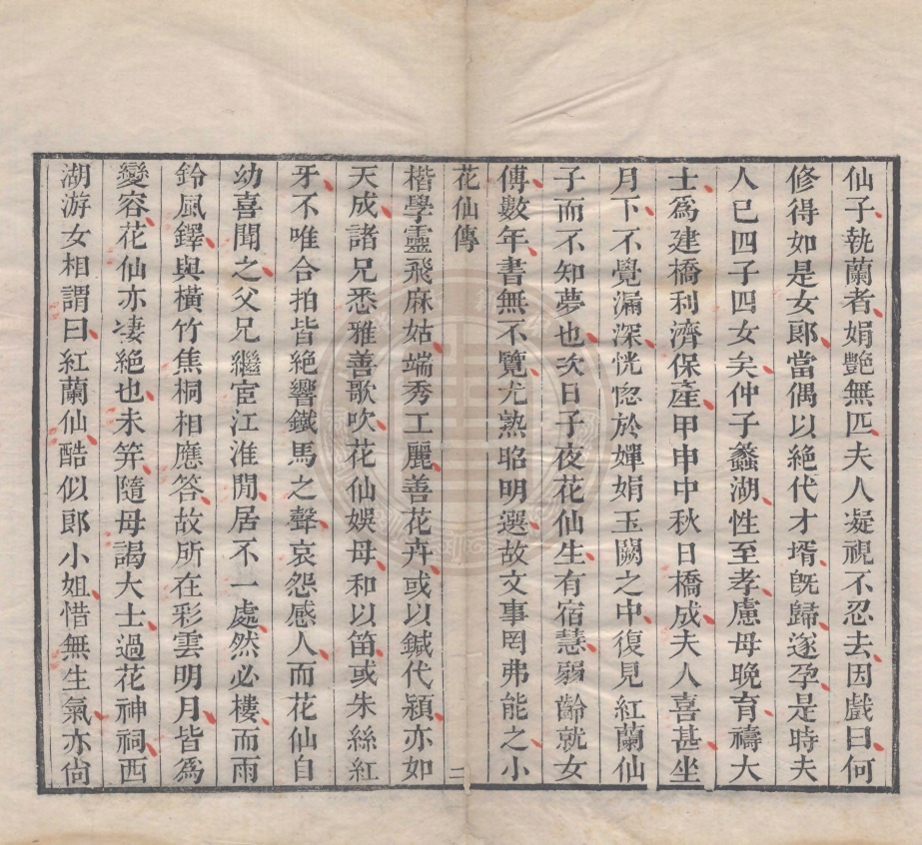 仙子執蘭者娟艷無匹夫人凝視不忍去因戲曰何
修得如是女郎當偶以絕代才壻旣歸遂孕是時夫
人已四子四女矣仲子蠡湖性至孝慮母晚育禱大
士爲建橋利濟保產甲申中秋日橋成夫人喜甚坐
月下不覺漏深恍惚於嬋娟玉闕之中復見紅蘭仙
子而不知夢也次日子夜花仙生有宿慧弱齡就女
傅數年書無不覽尤熟昭明選故文事罔弗能之小
花仙傳
二
楷學靈飛麻姑端秀工麗善花卉或以鍼代穎亦如
天成諸兄悉雅善歌吹花仙娛母和以笛或朱絲紅
牙不唯合拍皆絕響鐵馬之聲哀怨感人而花仙自
幼喜聞之父兄繼宦江淮閒居不一處然必樓而雨
鈴風鐸與橫竹焦桐相應答故所在彩雲明月皆爲
變容花仙亦凄絕也未笄隨母謁大士過花神祠西
湖游女相謂曰紅蘭仙酷似郎小姐惜無生氣亦尙